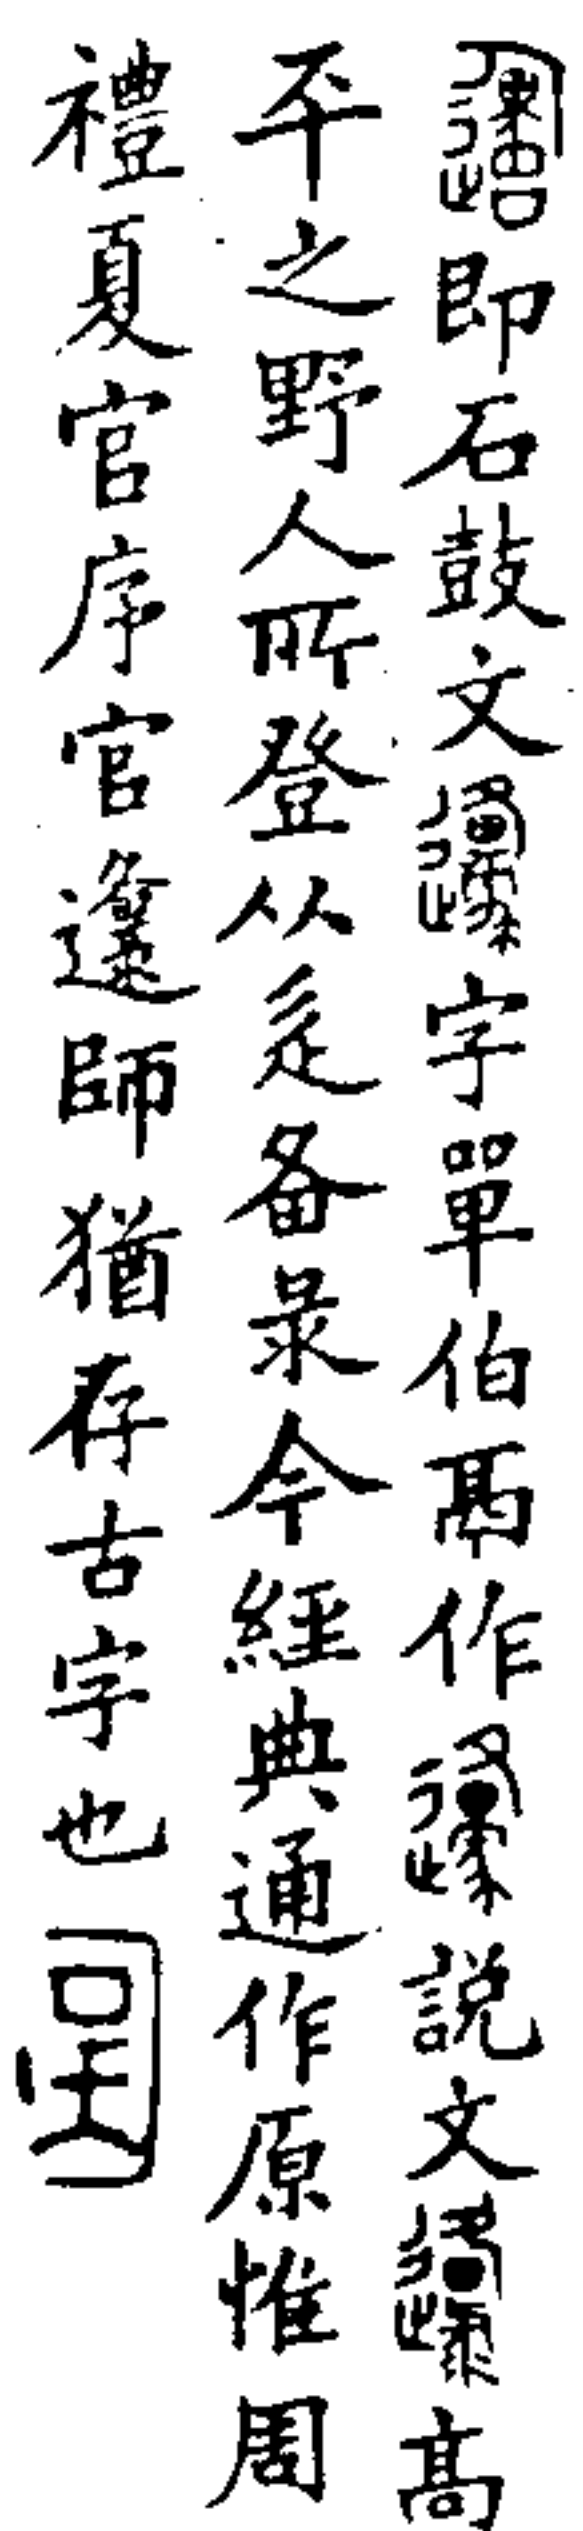 即石鼓文邍字單伯鬲作邍説文邍高
平之野人所登从辵备彔今經典通作原惟周
禮夏官序官邍師猶存古字也